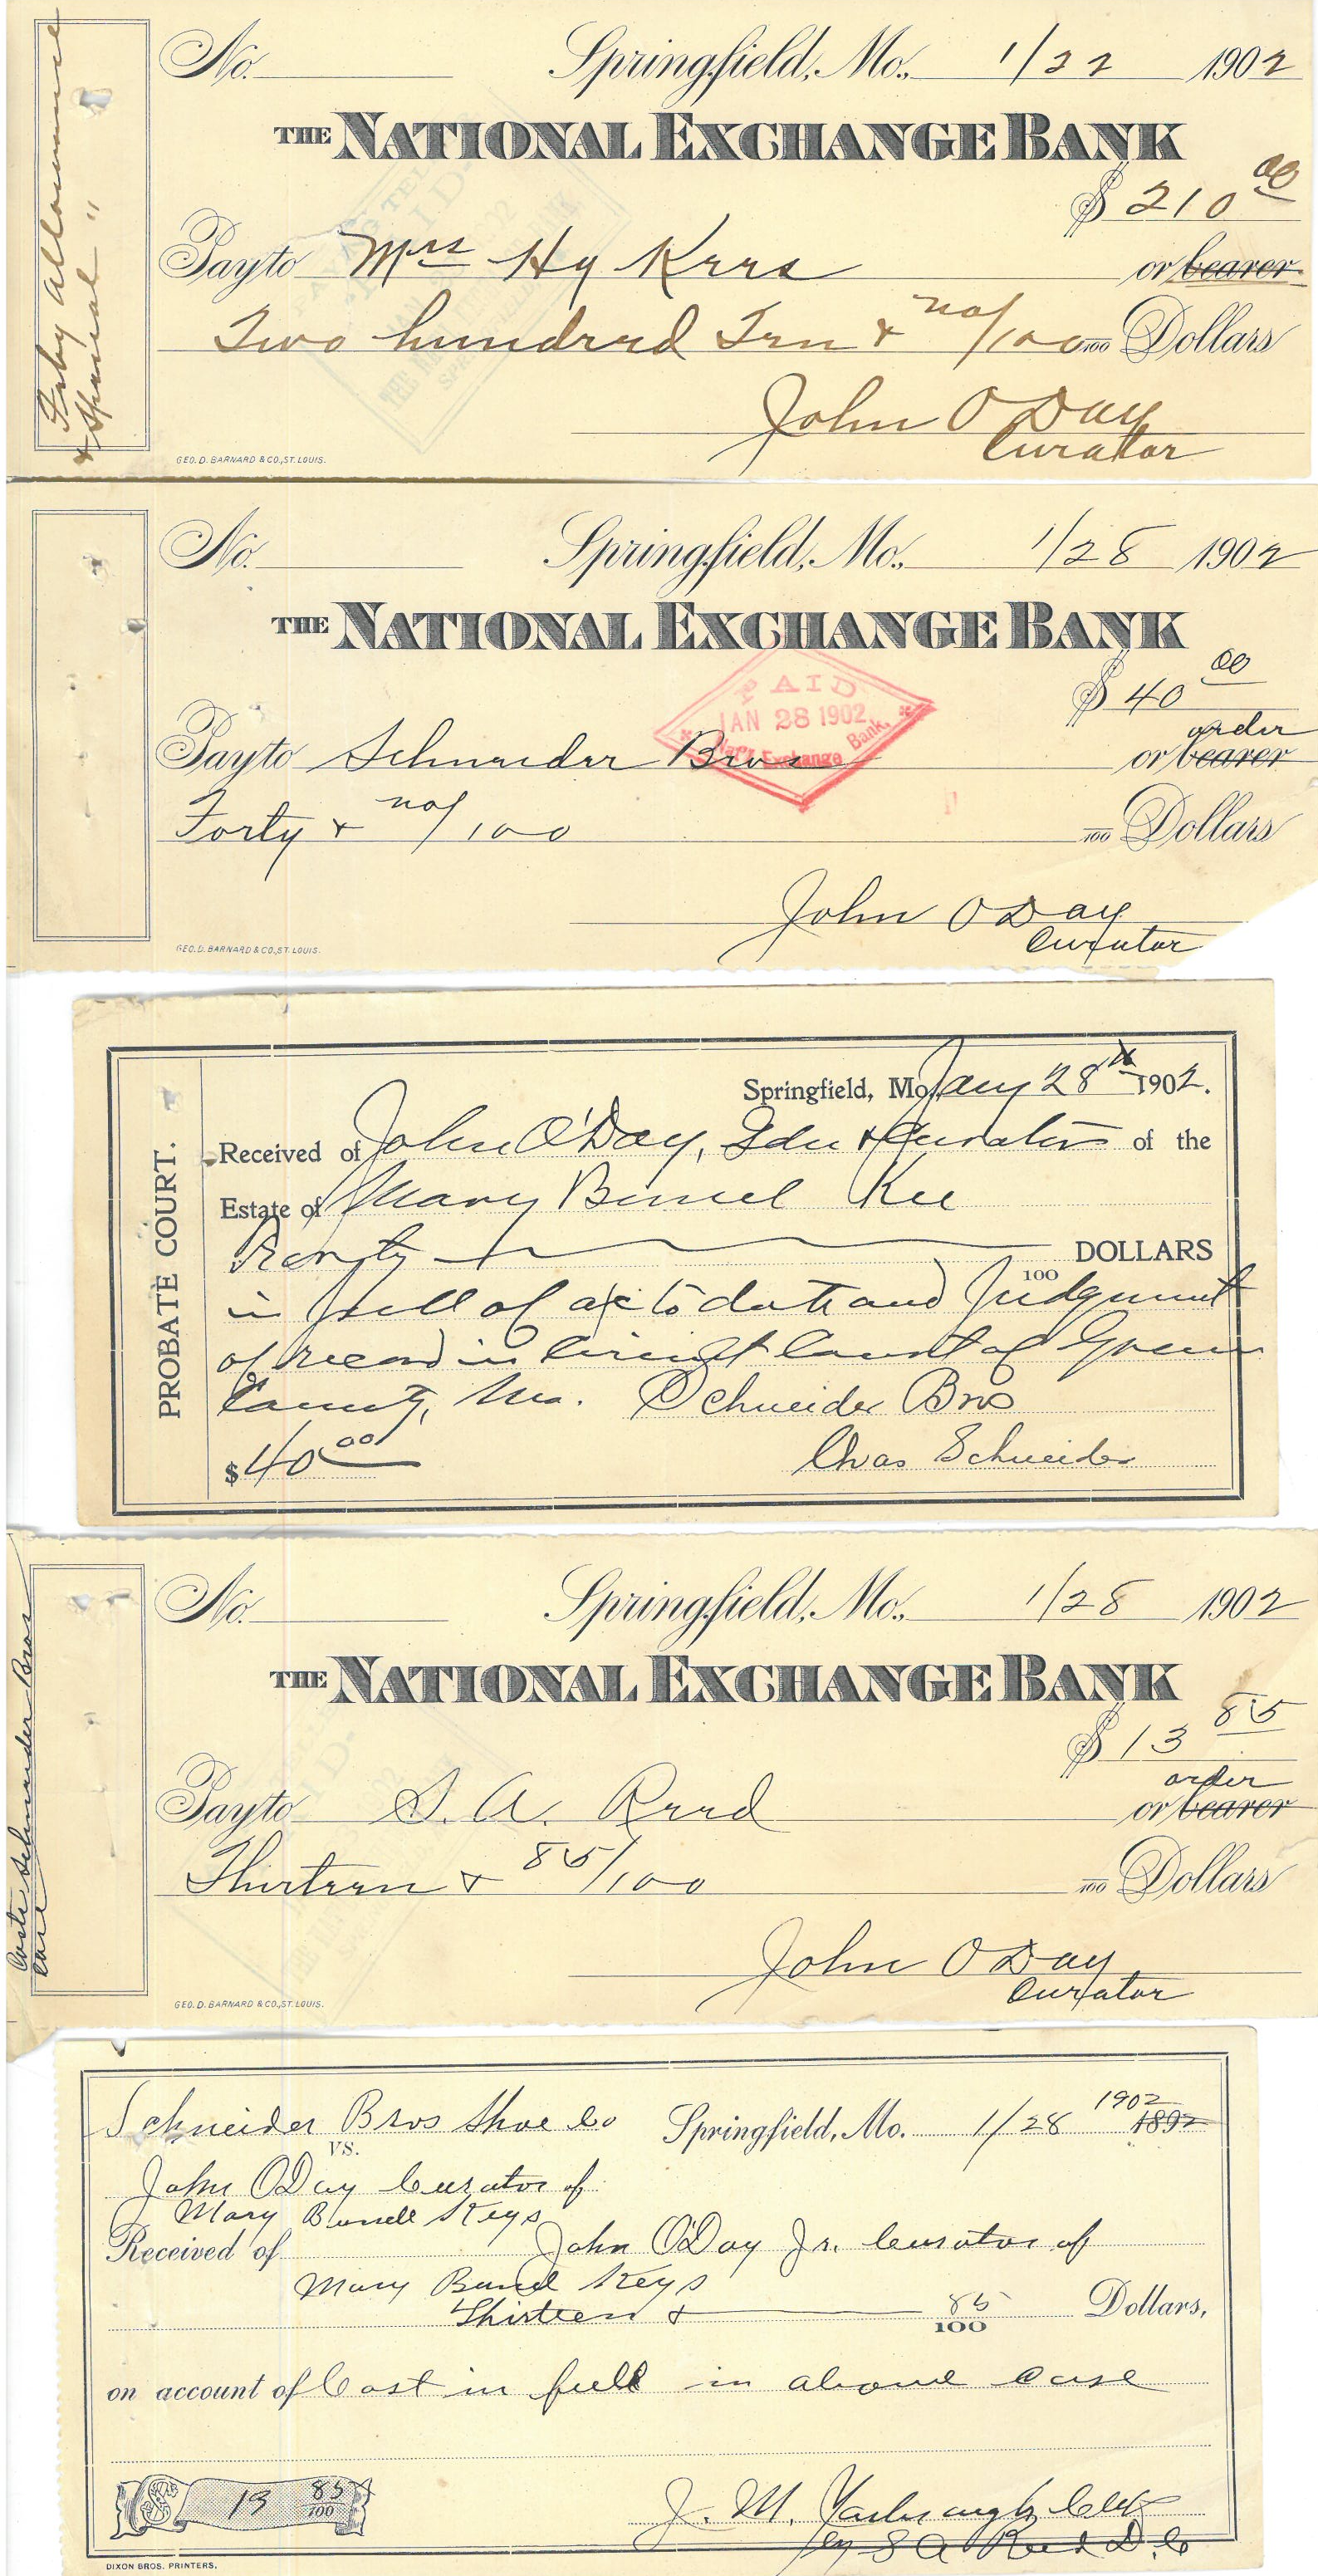 Feby Allowance
& Special "
No. Springfield, Mo., 1/22 1902
THE NATIONAL EXCHANGE BANK
$ 210 00
Pay to Mrs Hy Kees or bearer
Two hundred Ten & no/100 100 Dollars
John O Day
Curator
GEO. D. BARNARD & CO., ST. LOUIS.
No. Springfield, Mo., 1/28 1902
THE NATIONAL EXCHANGE BANK
PAID
JAN 28 1902
Nat'l Exchange Bank.
$ 40 00
order
Pay to Schneider Bros or bearer
Forty & no/100 100 Dollars
John O Day
Curator
GEO. D. BARNARD & CO., ST. LOUIS.
PROBATE COURT.
Springfield, Mo Jany 28th 1902.
Received of John O'Day, Gdn & Curator of the
Estate of Mary Bunel Kee
Forty 100 DOLLARS
in full of a/c to date and Judgment
of record in Circuit Court of Greene
County, Mo. Schneider Bros
$ 40 00 Chas Schneider
Costs Schneider Bros
Case
No. Springfield, Mo., 1/28 1902
THE NATIONAL EXCHANGE BANK
$ 13 85
order
Pay to S. A. Reed or bearer
Thirteen & 85/100 100 Dollars
John O Day
Curator
GEO. D. BARNARD & CO., ST. LOUIS.
Schneider Bros Shoe Co Springfield, Mo. 1/28 1902 1892
VS.
John O'Day Curator of
Mary Bunell Keys
Received of John O'Day Jr. Curator of
Mary Bunel Keys
Thirteen & 85/100 Dollars,
on account of Cost in full in above case
$ 13 85/100
J. M. Yarbrough Clk
by S A Reed D.C
DIXON BROS. PRINTERS.